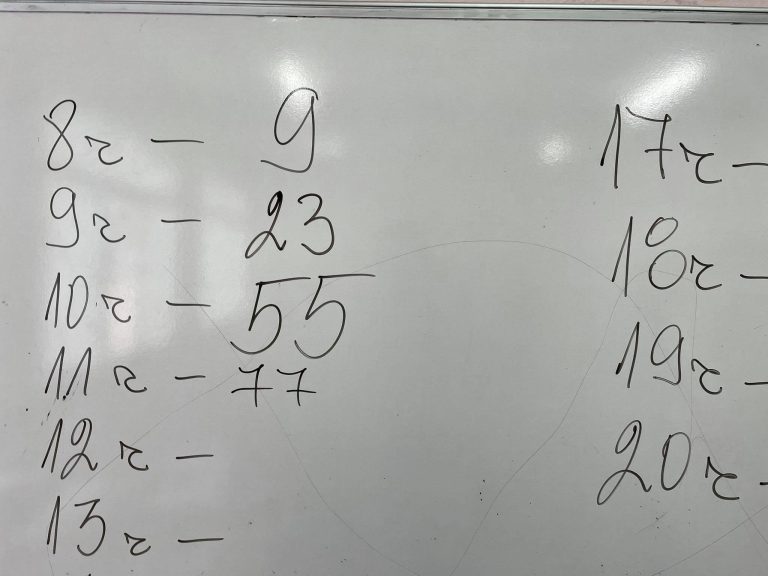 8г — 9
9г — 23
10г — 55
11г — 77
12г —
13г —
17г —
18г —
19г —
20г —